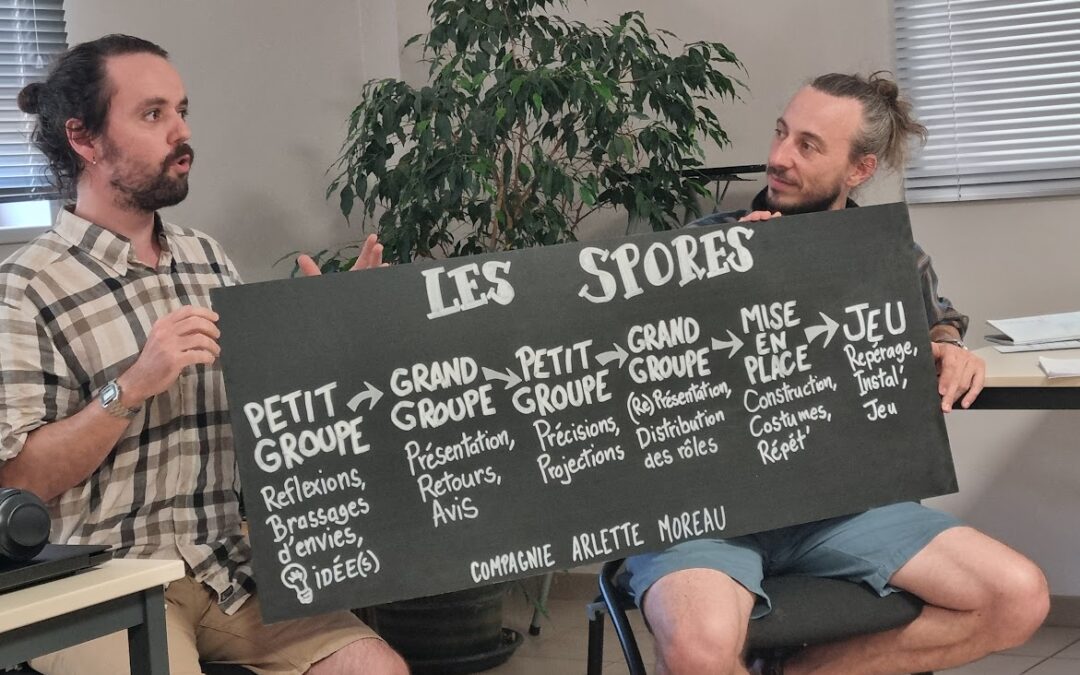 LES SPORES
PETIT
GROUPE
Reflexions,
Brassages
d'envies,
iDÉE(S)
GRAND
GROUPE
Présentation,
Retours,
Avis
PETIT
GROUPE
Précisions,
Projections
GRAND
GROUPE
(Re) Présentation,
Distribution
des rôles
MISE
EN
PLACE
Construction,
Costumes,
Répét'
JEU
Repérage,
Instal',
Jeu
COMPAGNIE ARLETTE MOREAU